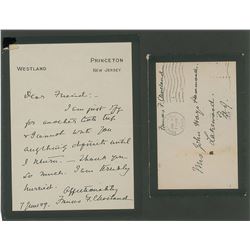 WESTLAND
PRINCETON
NEW JERSEY
Dear Friend:
I am just off
for another little trip
& I cannot write you
anything definite until
I return — Thank you
so much. I am terribly
hurried. Affectionately
Frances F. Cleveland.
7 June 09.
Frances F. Cleveland
Mrs John Hays Hammond
Lakewood
N.J.